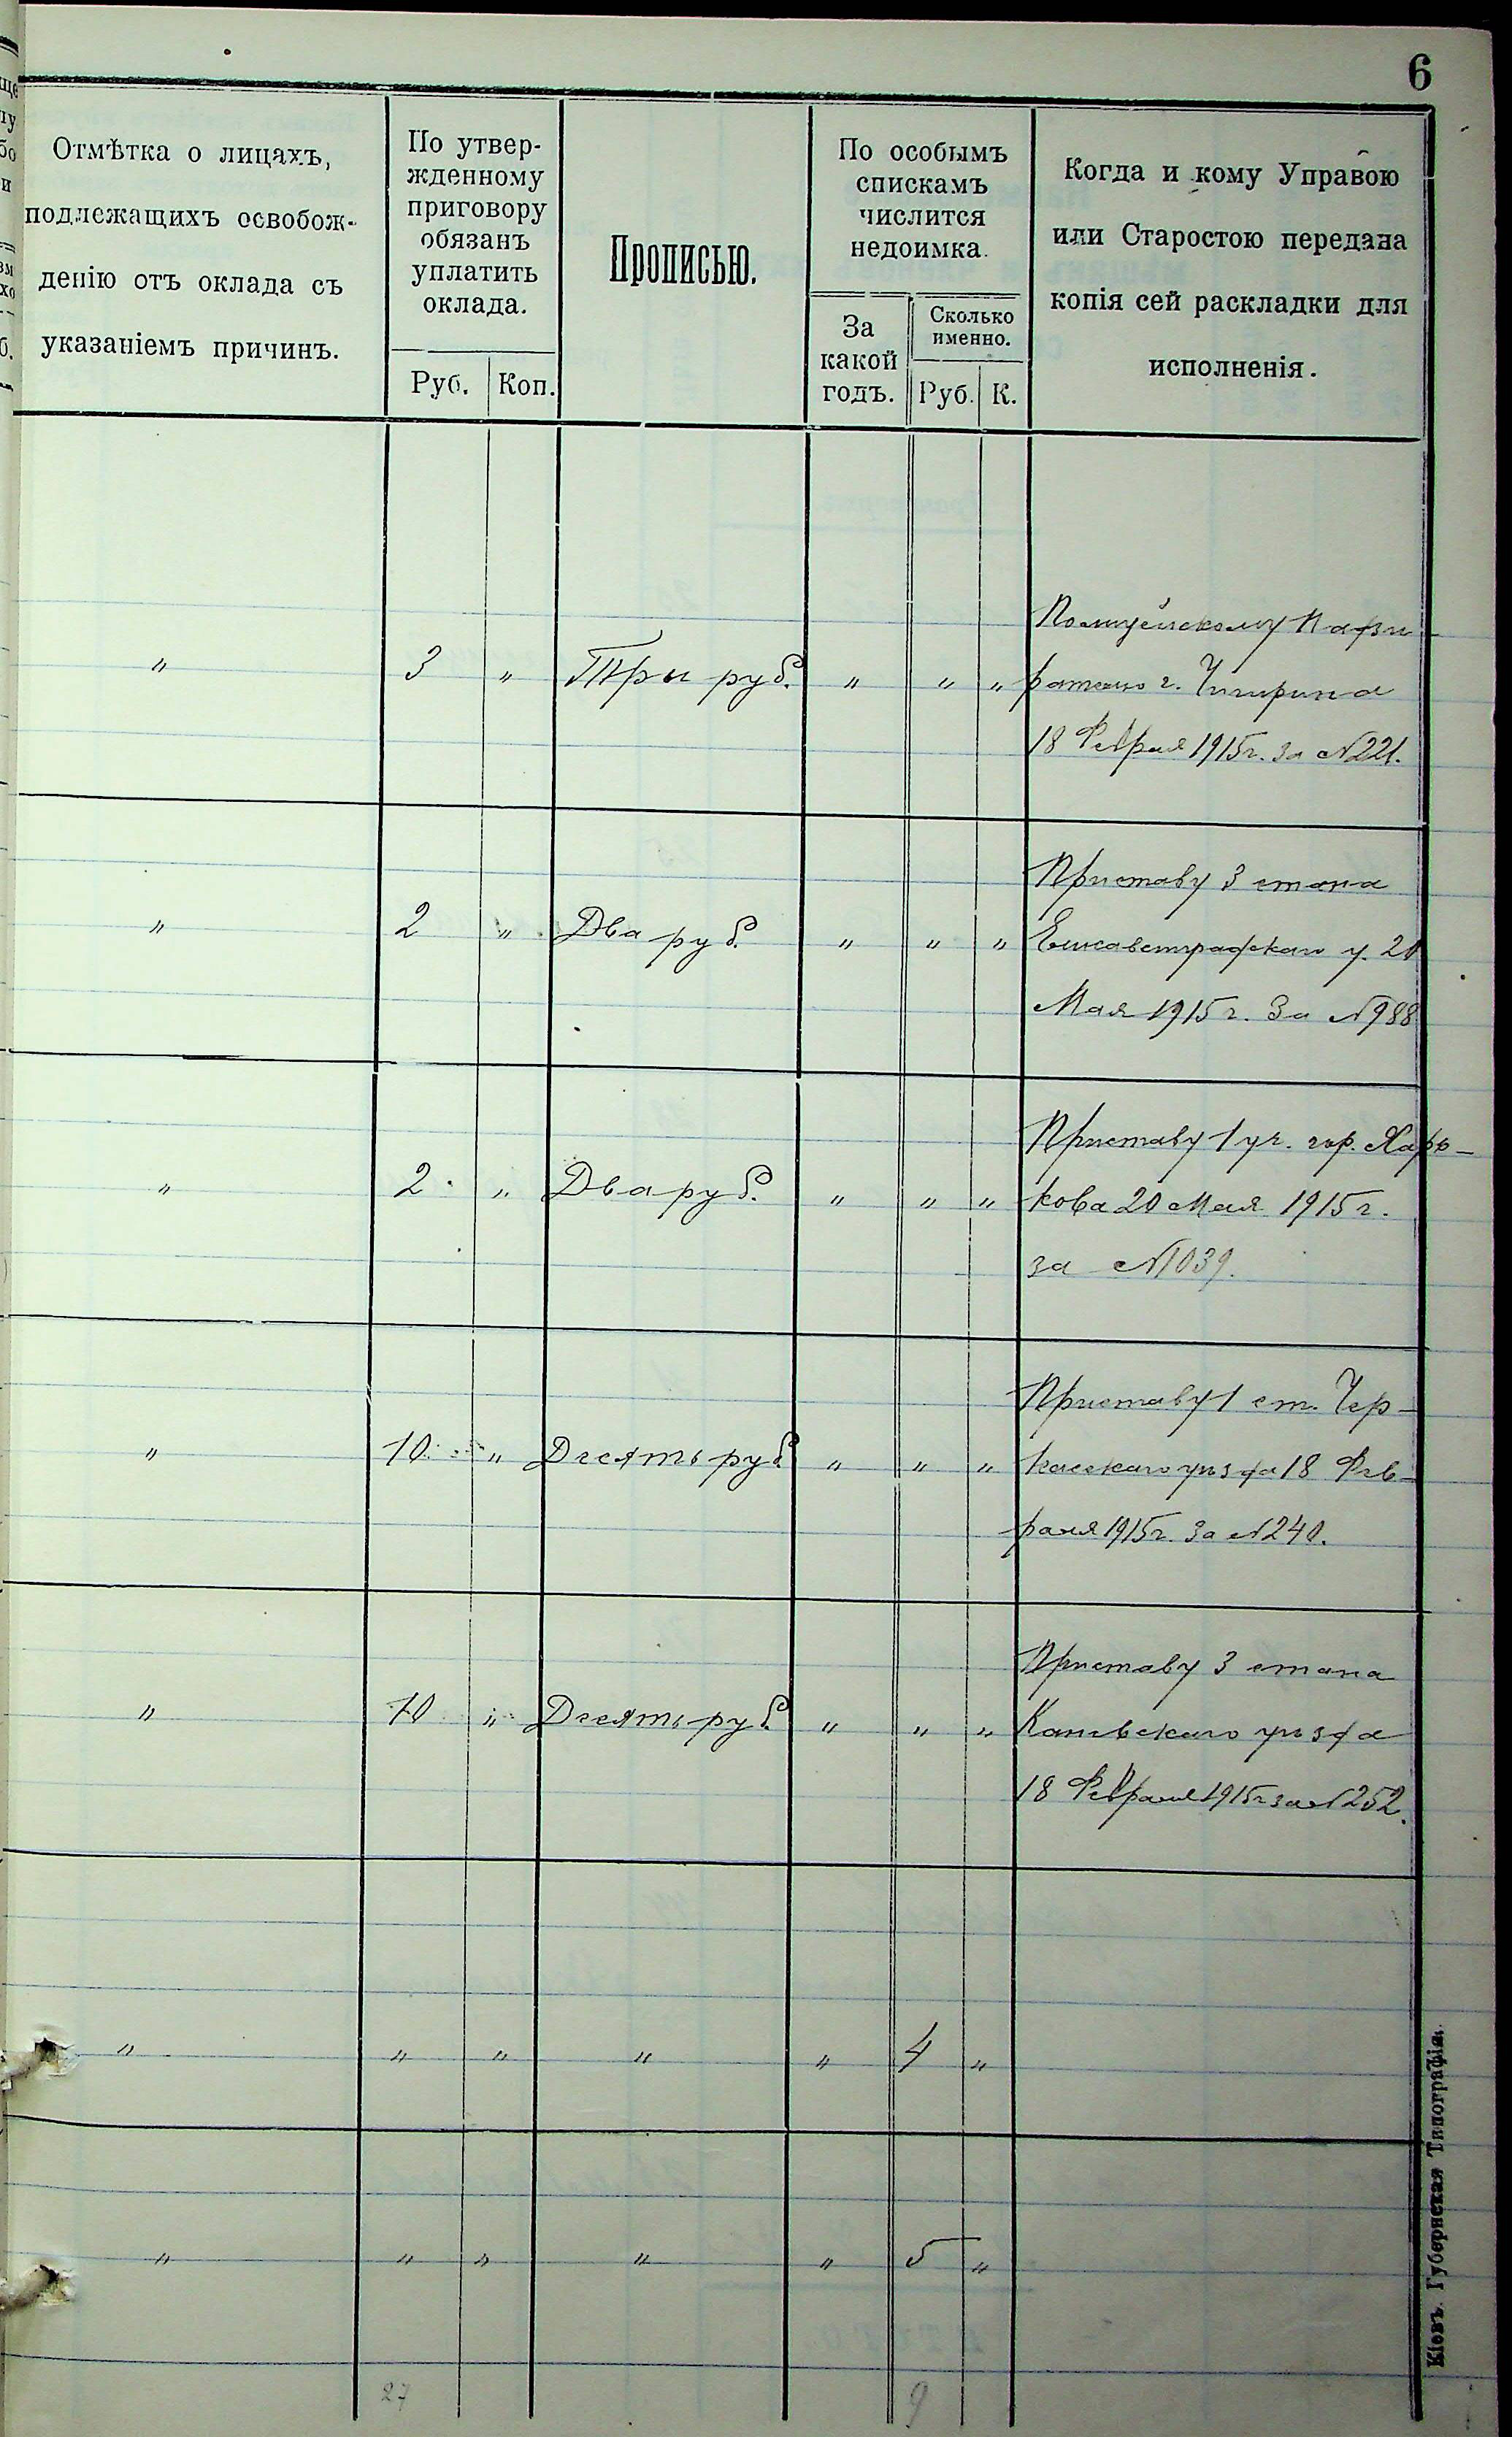 6
Отмѣтка о лицахъ,
подлежащихъ освобож-
денію отъ оклада съ
указаніемъ причинъ.
По утвер-
жденному
приговору
обязанъ
уплатить
оклада.
Руб. Коп.
Прописью.
По особымъ
спискамъ
числится
недоимка.
За
какой
годъ.
Сколько
именно.
Руб. К.
Когда и кому Управою
или Старостою передана
копія сей раскладки для
исполненія.
Полицейскому Надзи-
" 3 " Три руб. " " " рателю г. Чигирина
18 Февраля 1915 г. за №221.
Приставу 3 стана
" 2 " Два руб. " " " Елисаветградскаго у. 20
Мая 1915 г. За №988
Приставу 1 уч. гор. Харь-
" 2 " Два руб. " " " кова 20 Мая 1915 г.
за №1039.
Приставу 1 ст. Чер-
" 10 " Десять руб. " " " касскаго уѣзда 18 Фев-
раля 1915 г. За №240.
Приставу 3 стана
" 10 " Десять руб. " " " Каневскаго уѣзда
18 Февраля 1915 г за №252.
" " " " " 4 "
" " " " " 5 "
27 9
Кіевъ. Губернская Типографія.